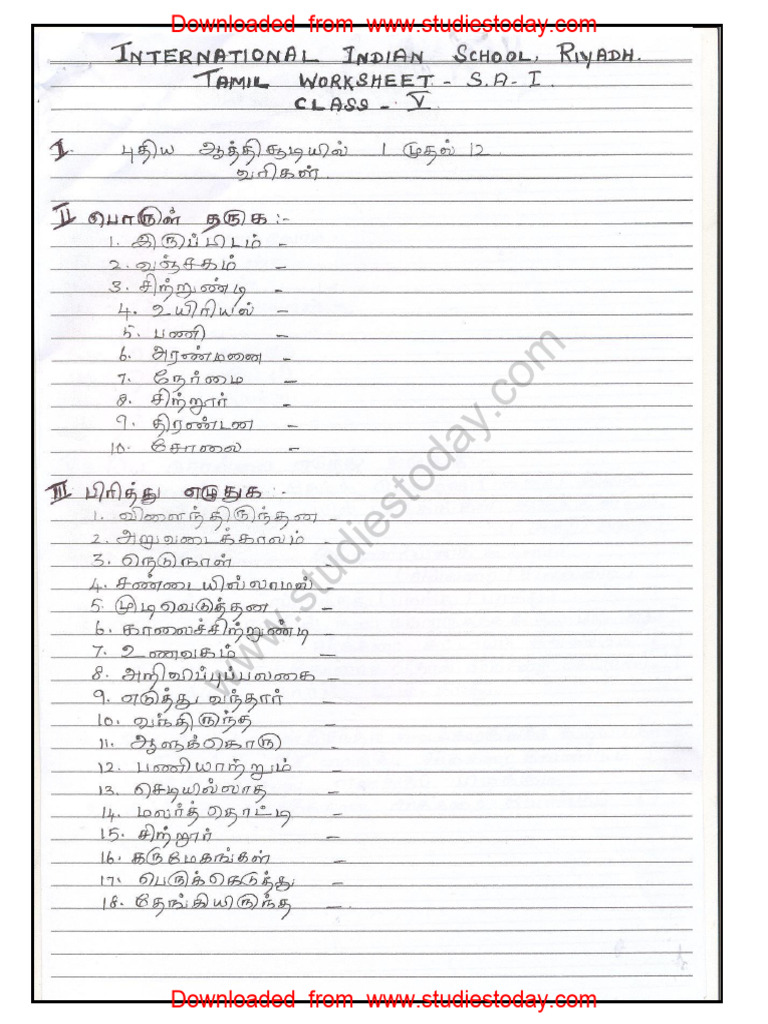 Downloaded from www.studiestoday.com
INTERNATIONAL INDIAN SCHOOL, RIYADH.
TAMIL WORKSHEET - S.A - I.
CLASS - V
I. புதிய ஆத்திசூடியில் 1 முதல் 12
வரிகள்.
II பொருள் தருக :-
1. இருப்பிடம் -
2. வஞ்சகம் -
3. சிற்றுண்டி -
4. உயிரியல் -
5. பணி -
6. அரண்மனை -
7. நேர்மை -
8. சிற்றூர் -
9. திரண்டன -
10. சோலை -
III பிரித்து எழுதுக :-
1. விளைந்திருந்தன -
2. அறுவடைக்காலம் -
3. நெடுநாள் -
4. சண்டையில்லாமல் -
5. முடிவெடுத்தன -
6. காலைச்சிற்றுண்டி -
7. உணவகம் -
8. அறிவிப்புப்பலகை -
9. எடுத்து வந்தார் -
10. வந்திருந்த -
11. ஆளுக்கொரு -
12. பணியாற்றும் -
13. செடியில்லாத -
14. மலர்த் தொட்டி -
15. சிற்றூர் -
16. கருமேகங்கள் -
17. பெருக்கெடுத்து -
18. தேங்கியிருந்த -
www.studiestoday.com
Downloaded from www.studiestoday.com